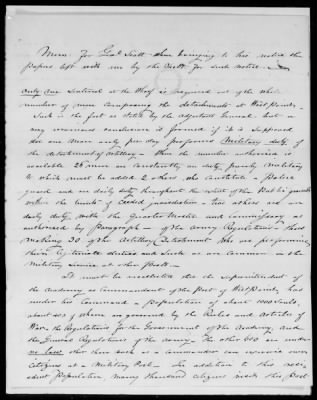 Mem: for Genl Scott – when bringing to his notice the
papers left with me by the for such notice –
only one Sentinel at the Wharf is required out of the whole
number of men composing the detachments at West Point –
Such is the fact as stated by the Adjutant General, but a
very erroneous conclusion is formed if it is supposed
that one man only per day performs Military duty of
the detachment of Artillery – When the number authorized is
available 26 men are constantly on duty, purely military
to which must be added 2 others who constitute a Police
guard and on daily duty throughout the whole of the Public grounds
within the limits of ceded jurisdiction – two others are on
daily duty with the Quarter Master and Commissary as
authorized by Paragraph – of the Army Regulations – thus
making 30 of the Artillery Detachment who are performing
their legitimate duties and such as are common in the
Military service at other posts.–
It must be recollected that the Superintendent of
the Academy as Commandant of the Post of West Point, has
under his Command a population of about 1000 souls,
about of whom are governed by the Rules and Articles of
War, the Regulations for the Government of the Academy, and
the General Regulations of the Army – the other are under
no law that their such as a Commander can exercise over
citizens at a Military Post – In addition to this resi-
dent population, many thousand citizens visit this Post